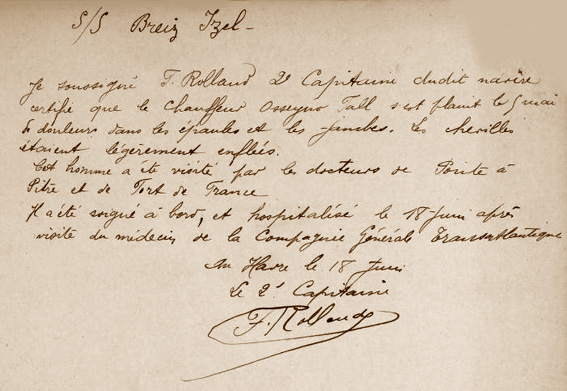 S/S Breiz Izel -
Je soussigné F. Rolland 2e Capitaine dudit navire
certifie que le chauffeur Osseyno Fall s'est plaint le 5 mai
de douleurs dans les épaules et les jambes. Les chevilles
étaient légèrement enflées.
Cet homme a été visité par les docteurs de Pointe à
Pitre et de Fort de France
Il a été soigné à bord, et hospitalisé le 18 Juin après
visite du médecin de la Compagnie Générale Transatlantique
Au Havre le 18 Juin
Le 2e Capitaine
F. Rolland